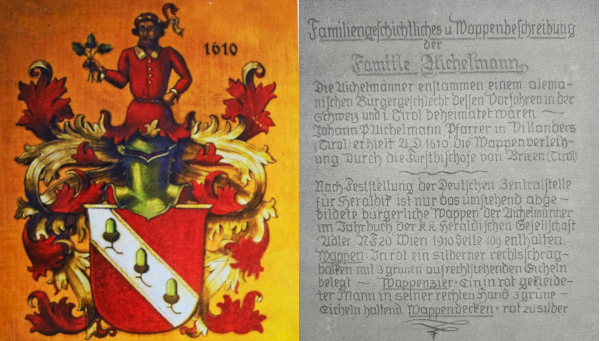 1610
Familiengeschichtliches u. Wappenbeschreibung
der
Familie Aichelmann
Die Aichelmänner enstammen einem alema-
nischen Bürgergeschlecht dessen Vorfahren in der
Schweiz und i. Tirol beheimatet waren ~
Johann P. Aichelmann, Pfarrer in Villanders
(Tirol) erhielt A.D. 1610 die Wappenverleih-
ung durch die Fürstbischöfe von Brixen (Tirol)
Nach Feststellung der Deutschen Zentralstelle
für Heraldik ist nur das umstehend abge-
bildete bürgerliche Wappen der Aichelmänner
im Jahrbuch der K.K. Heraldischen Gesellschaft
Adler N.F. 20 Wien 1910 Seite 109 enthalten.
Wappen - In rot ein silberner rechtsschräg-
balken mit 3 grünen aufrechtstehenden Eicheln
belegt ~ Wappenzier - Ein in rot gekleide-
ter Mann in seiner rechten Hand 3 grüne -
Eicheln haltend. Wappendecken - rot zu silber